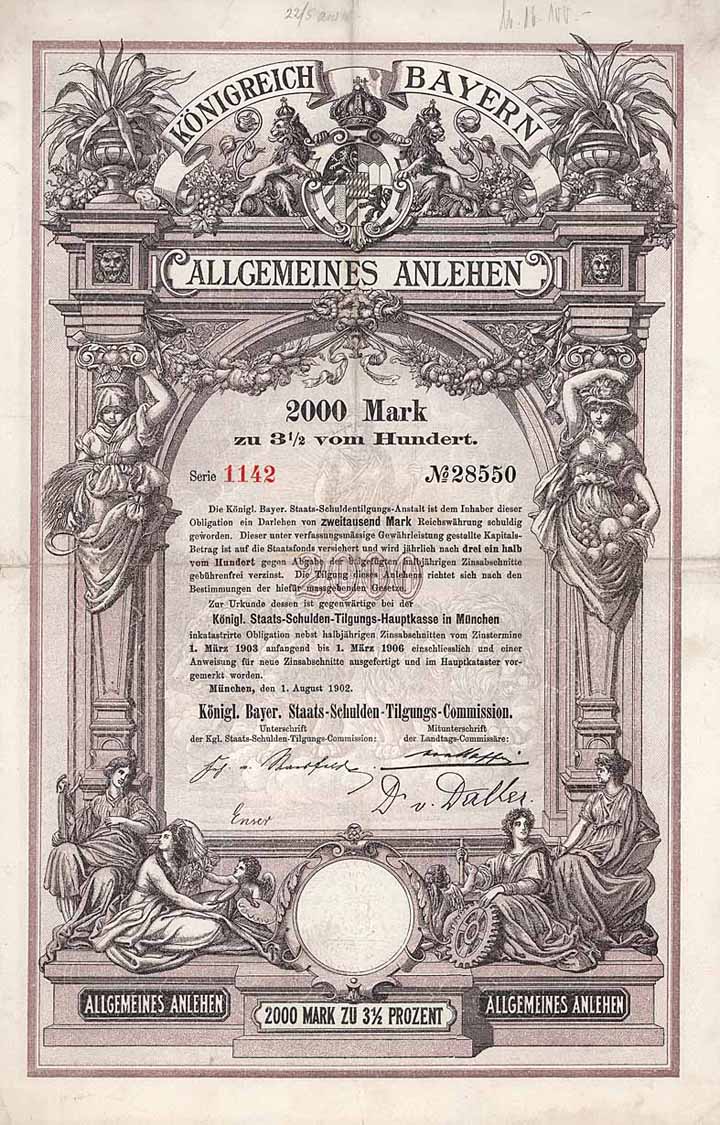 22/5
KÖNIGREICH BAYERN
ALLGEMEINES ANLEHEN
2000 Mark
zu 3½ vom Hundert.
Serie 1142 № 28550
Die Königl. Bayer. Staats-Schuldentilgungs-Anstalt ist dem Inhaber dieser
Obligation ein Darlehen von zweitausend Mark Reichswährung schuldig
geworden. Dieser unter verfassungsmässige Gewährleistung gestellte Kapitals-
Betrag ist auf die Staatsfonds versichert und wird jährlich nach drei ein halb
vom Hundert gegen Abgabe der beigefügten halbjährigen Zinsabschnitte
gebührenfrei verzinst. Die Tilgung dieses Anlehens richtet sich nach den
Bestimmungen der hiefür massgebenden Gesetze.
2000
Zur Urkunde dessen ist gegenwärtige bei der
Königl. Staats-Schulden-Tilgungs-Hauptkasse in München
inkatastrirte Obligation nebst halbjährigen Zinsabschnitten vom Zinstermine
1. März 1903 anfangend bis 1. März 1906 einschliesslich und einer
Anweisung für neue Zinsabschnitte ausgefertigt und im Hauptkataster vor-
gemerkt worden.
München, den 1. August 1902.
Königl. Bayer. Staats-Schulden-Tilgungs-Commission.
Unterschrift Mitunterschrift
der Kgl. Staats-Schulden-Tilgungs-Commission: der Landtags-Commissäre:
Dr v. Daller.
ALLGEMEINES ANLEHEN
2000 MARK ZU 3½ PROZENT
ALLGEMEINES ANLEHEN